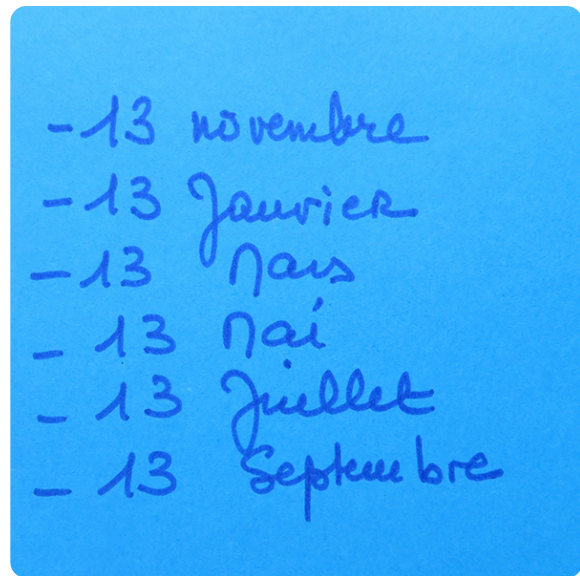 - 13 novembre
- 13 Janvier
- 13 Mars
- 13 Mai
- 13 Juillet
- 13 Septembre